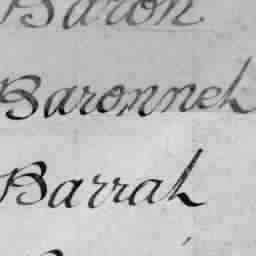 Baron
Baronnet
Barrat